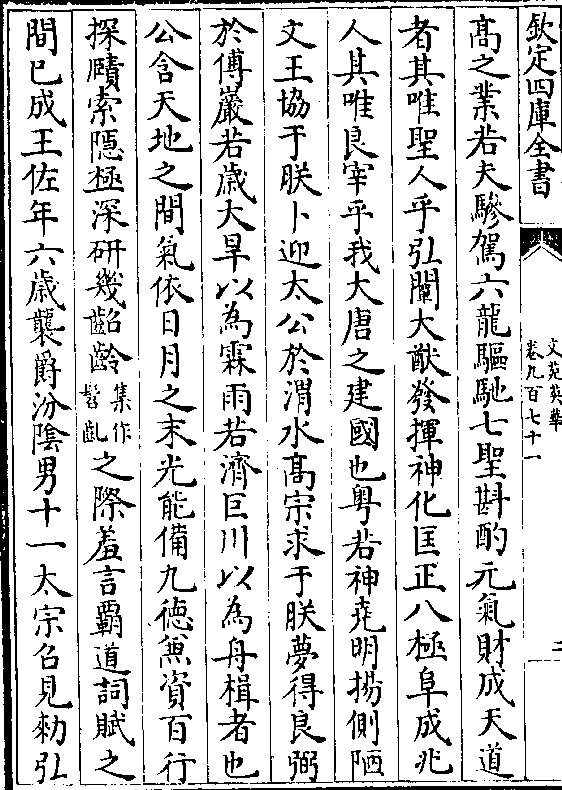 欽定四庫全書
文苑英華
卷九百七十一
二
髙之業若夫驂駕六龍驅馳七聖斟酌元氣財成天道
者其唯聖人乎引闡大猷發揮神化匡正八極阜成兆
人其唯良宰乎我大唐之建國也粤若神堯明揚側陋
文王協于朕卜迎太公於渭水髙宗求于朕夢得良弼
於傅巖若歲大旱以為霖雨若濟巨川以為舟楫者也
公含天地之間氣依日月之末光能備九德兼資百行
探賾索隱極深研幾齠齡集作髫齓之際羞言霸道詞賦之
間已成王佐年六歲襲爵汾陰男十一太宗召見勑引